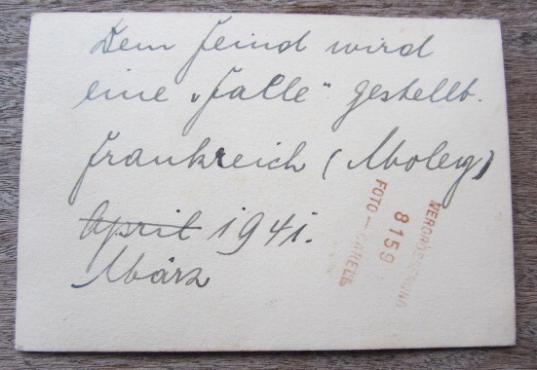 Dem Feind wird
eine „Falle“ gestellt.
Frankreich (Moley)
April 1941.
März
8159
FOTO —